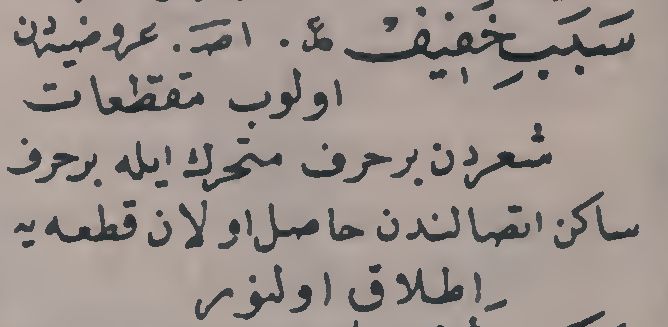 سَبَبِ خَفِيفْ عَ. اصَـ. عروضيدن
اولوب متقطعات
شعردن بر حرف متحرك ايله بر حرف
ساكن اتصالندن حاصل اولان قطعه يه
اطلاق اولنور